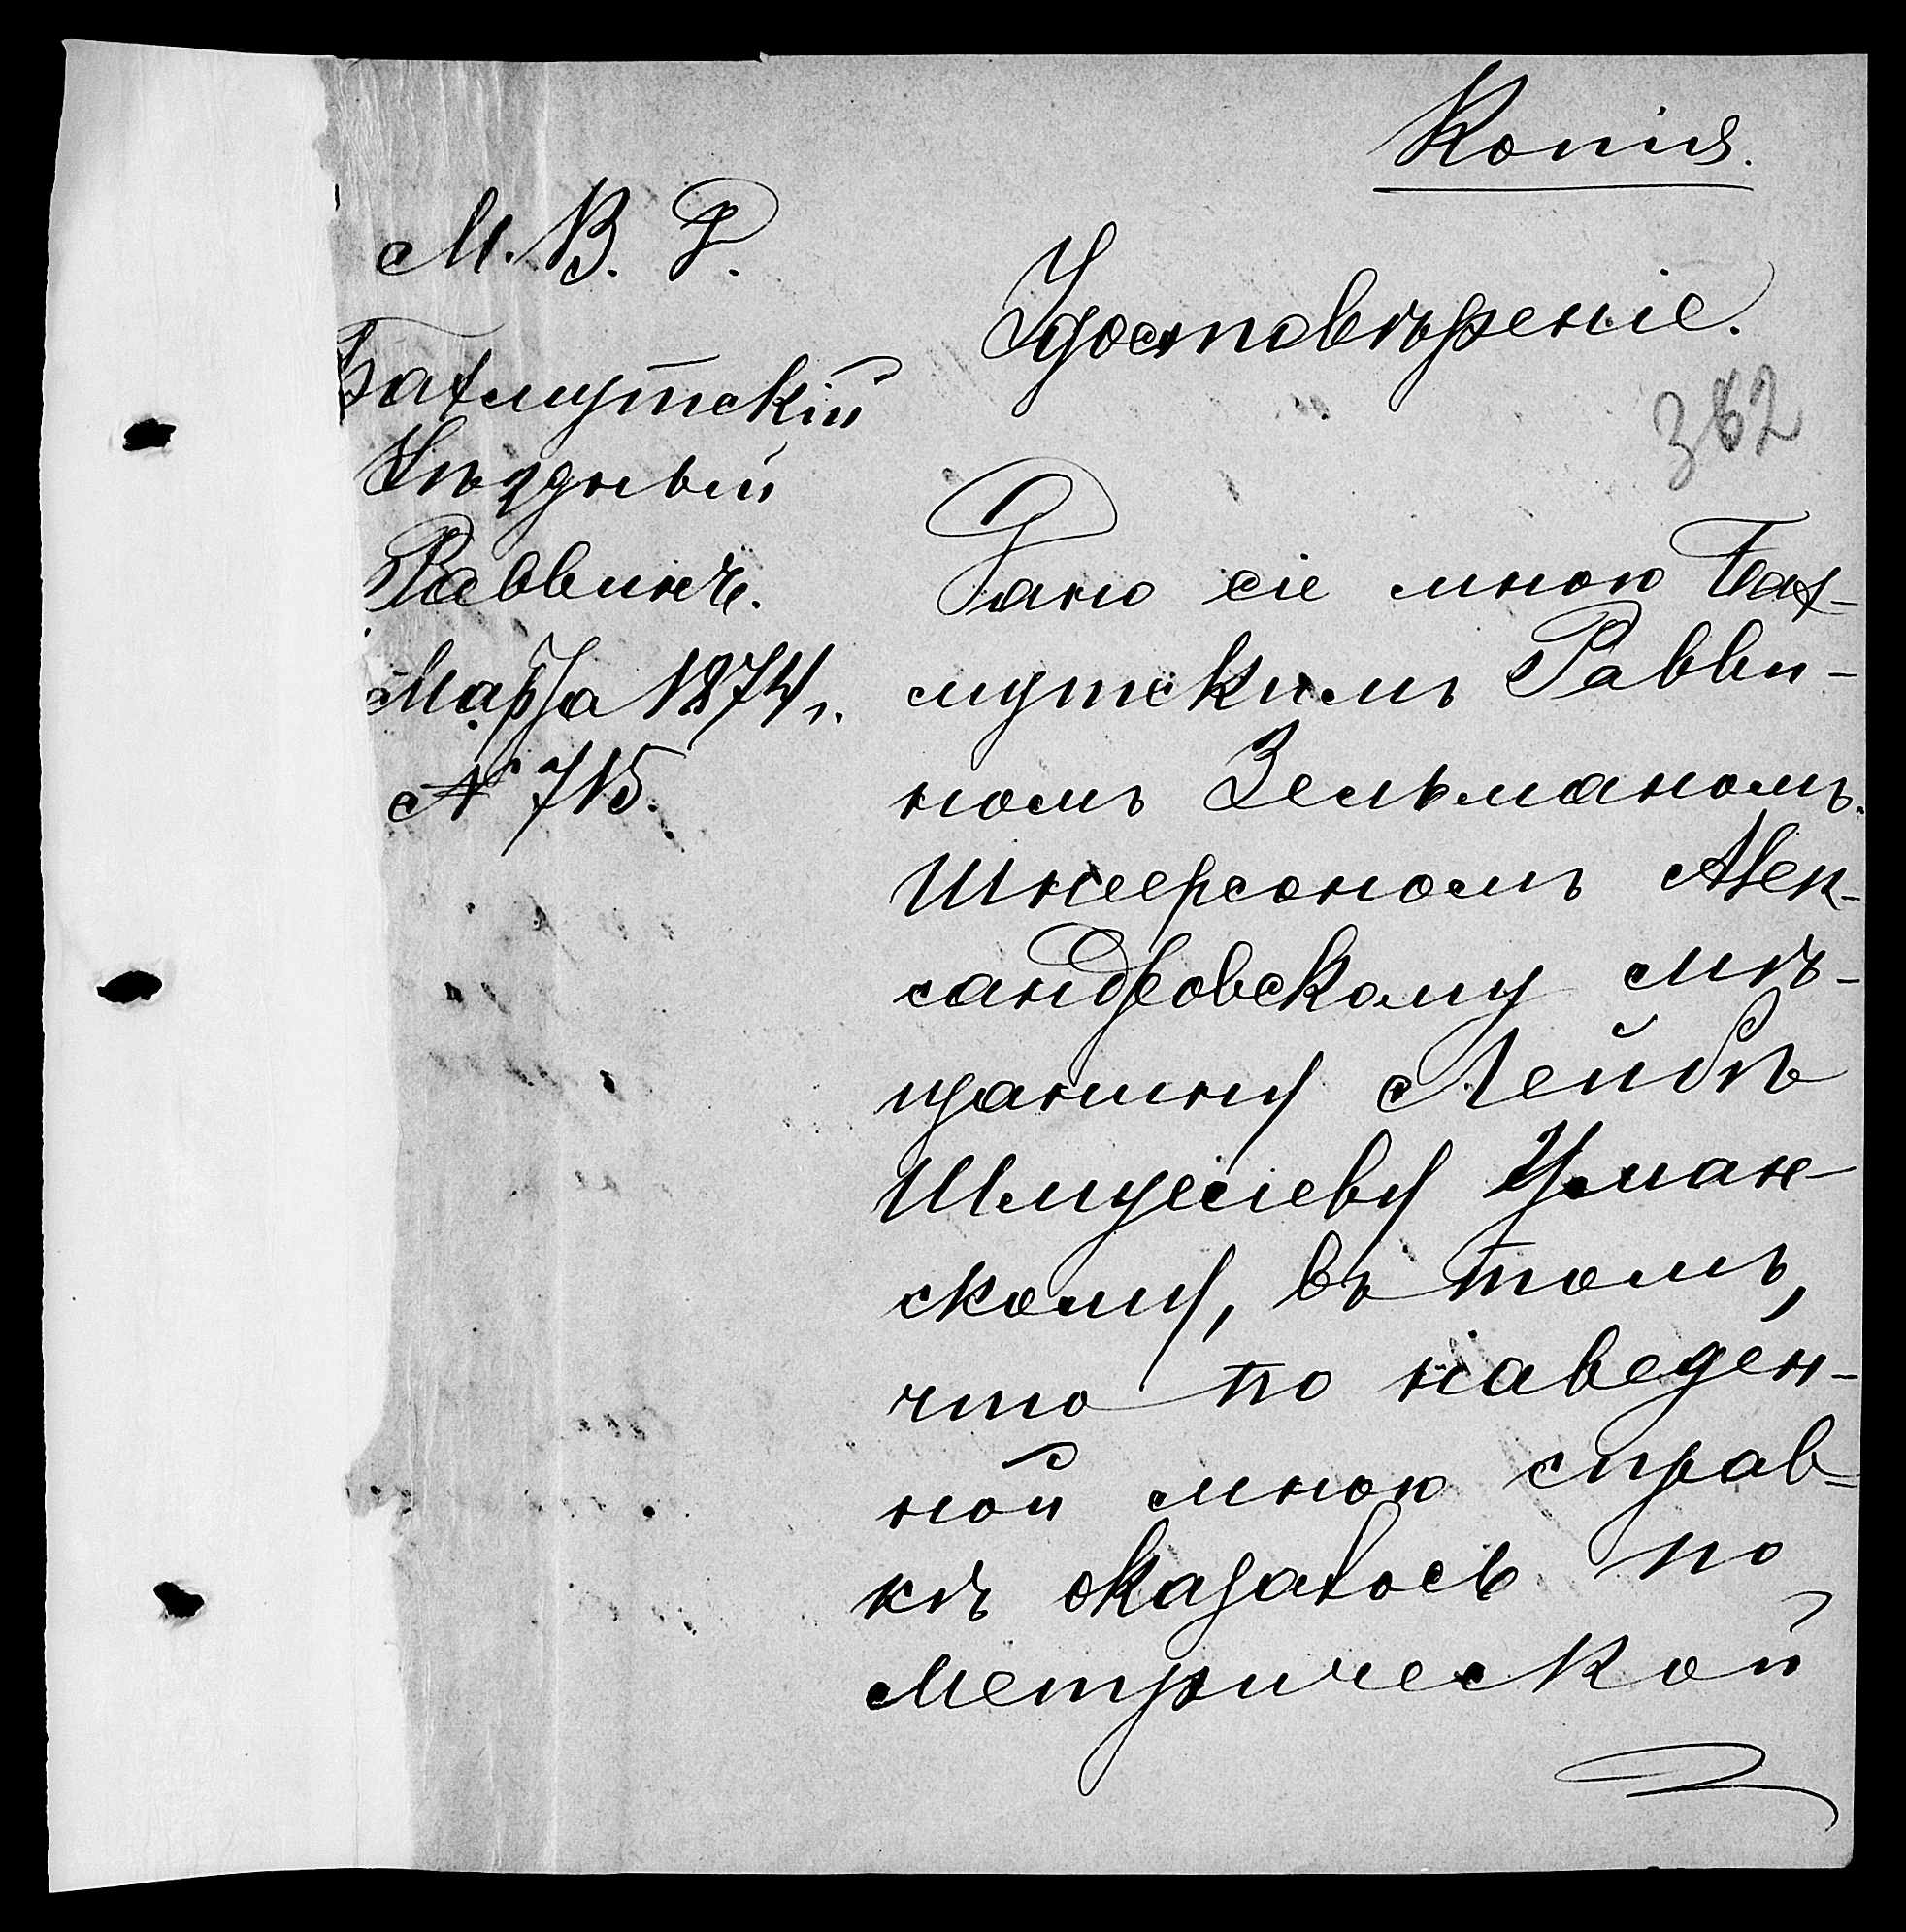 Копія.
М. В. Д.
Бахмутскій
Уѣздный
Раввинъ.
Марта 1874 г.
№ 715.
Удостовѣреніе.
362
Дано сіе мною Бах-
мутскимъ Равви-
номъ Зельманомъ
Шнеерсономъ Алек-
сандровскому мѣ-
щанину Лейбѣ
Шмуелеву Уман-
скому, въ томъ,
что по наведен-
ной мною справ-
кѣ оказалось по
Метрической